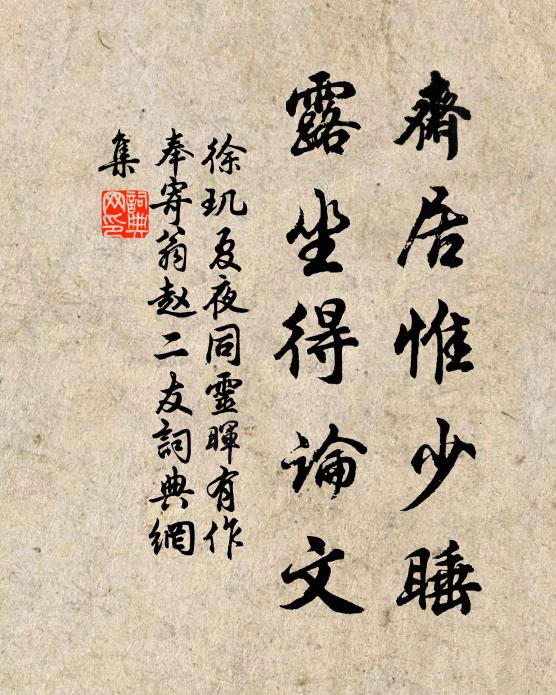 齋居惟少睡
露坐得論文
徐玑夏夜同靈暉有作
奉寄翁赵二友詞典網
集
詞典
网印